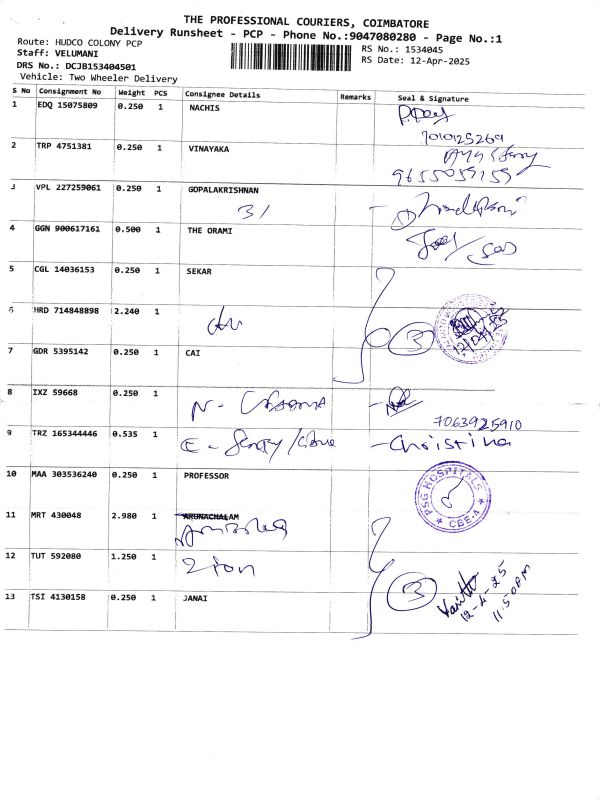 THE PROFESSIONAL COURIERS, COIMBATORE
Delivery Runsheet - PCP - Phone No.:9047080280 - Page No.:1
Route: HUDCO COLONY PCP
Staff: VELUMANI
DRS No.: DCJB153404501
Vehicle: Two Wheeler Delivery
RS No.: 1534045
RS Date: 12-Apr-2025
S No Consignment No Weight PCS Consignee Details Remarks Seal & Signature
1 EDQ 15075809 0.250 1 NACHIS
7010125269
2 TRP 4751381 0.250 1 VINAYAKA
9655059159
3 VPL 227259061 0.250 1 GOPALAKRISHNAN
31
4 GGN 900617161 0.500 1 THE ORAMI
5 CGL 14036153 0.250 1 SEKAR
6 HRD 714848898 2.240 1
3
12/04/25
7 GDR 5395142 0.250 1 CAI
8 IXZ 59668 0.250 1
7063925910
9 TRZ 165344446 0.535 1 - Christina
10 MAA 303536240 0.250 1 PROFESSOR
PSG HOSPITALS
CBE-4
11 MRT 430048 2.980 1 ARUNACHALAM
12 TUT 592080 1.250 1 Zion
13 TSI 4130158 0.250 1 JANAI
3
12-4-25
11.50 AM